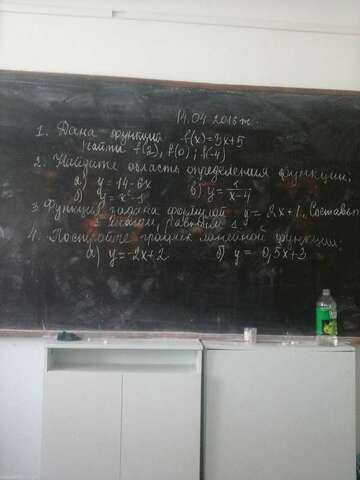 14.04.2018ж.
1. Дана функция f(x)=3x+5
найти f(2), f(0); f(-4)
2. Найдите область определения функции:
а) y=14-6x в) y=1/(x-4)
б) y=x²-1
3. Функция задана формулой y=2x+1. Составьте
шагом, равным 1
4. Постройте график линейной функции:
а) y=-2x+2 б) y=0,5x+3